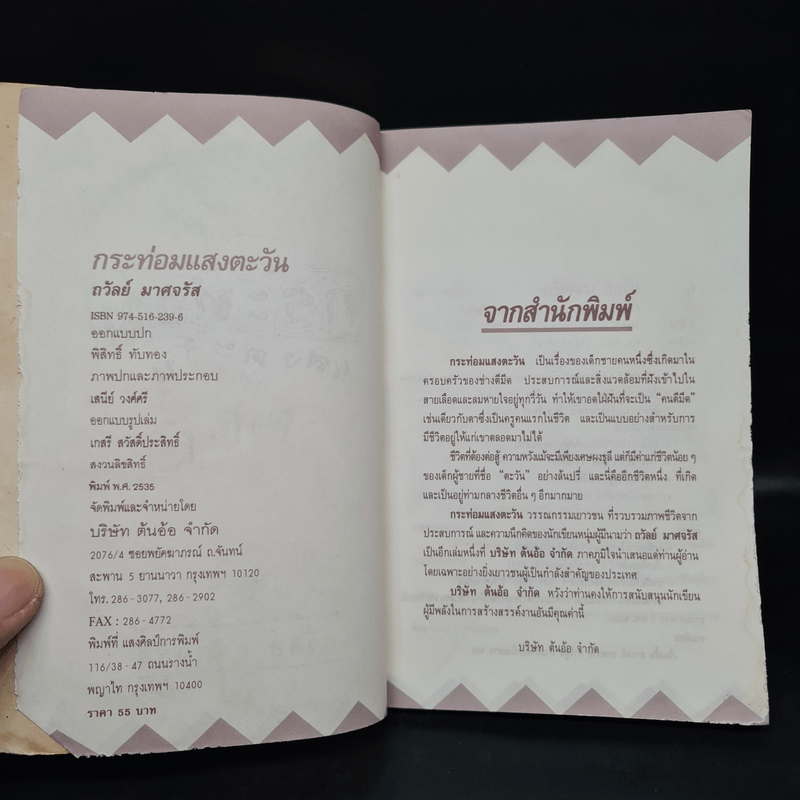 กระท่อมแสงตะวัน
ถวัลย์ มาศจรัส
ISBN 974-516-239-6
ออกแบบปก
พิสิทธิ์ ทับทอง
ภาพปกและภาพประกอบ
เสนีย์ วงศ์ศรี
ออกแบบรูปเล่ม
เกสรี สวัสดิ์ประสิทธิ์
สงวนลิขสิทธิ์
พิมพ์ พ.ศ. 2535
จัดพิมพ์และจำหน่ายโดย
บริษัท ต้นอ้อ จำกัด
2076/4 ซอยพยัคฆาภรณ์ ถ.จันทน์
สะพาน 5 ยานนาวา กรุงเทพฯ 10120
โทร. 286-3077, 286-2902
FAX : 286-4772
พิมพ์ที่ แสงศิลป์การพิมพ์
116/38-47 ถนนรางน้ำ
พญาไท กรุงเทพฯ 10400
ราคา 55 บาท
จากสำนักพิมพ์
กระท่อมแสงตะวัน เป็นเรื่องของเด็กชายคนหนึ่งซึ่งเกิดมาใน
ครอบครัวของช่างตีมีด ประสบการณ์และสิ่งแวดล้อมที่ฝังเข้าไปใน
สายเลือดและลมหายใจอยู่ทุกวี่วัน ทำให้เขาอดใฝ่ฝันที่จะเป็น "คนตีมีด"
เช่นเดียวกับตาซึ่งเป็นครูคนแรกในชีวิต และเป็นแบบอย่างสำหรับการ
มีชีวิตอยู่ให้แก่เขาตลอดมาไม่ได้
ชีวิตที่ต้องต่อสู้ ความหวังแม้จะมีเพียงเศษผงธุลี แต่ก็มีค่าแก่ชีวิตน้อย ๆ
ของเด็กผู้ชายที่ชื่อ "ตะวัน" อย่างล้นปรี่ และนี่คืออีกชีวิตหนึ่ง ที่เกิด
และเป็นอยู่ท่ามกลางชีวิตอื่น ๆ อีกมากมาย
กระท่อมแสงตะวัน วรรณกรรมเยาวชน ที่รวบรวมภาพชีวิตจาก
ประสบการณ์ และความนึกคิดของนักเขียนหนุ่มผู้มีนามว่า ถวัลย์ มาศจรัส
เป็นอีกเล่มหนึ่งที่ บริษัท ต้นอ้อ จำกัด ภาคภูมิใจนำเสนอแด่ท่านผู้อ่าน
โดยเฉพาะอย่างยิ่งเยาวชนผู้เป็นกำลังสำคัญของประเทศ
บริษัท ต้นอ้อ จำกัด หวังว่าท่านคงให้การสนับสนุนนักเขียน
ผู้มีพลังในการสร้างสรรค์งานอันมีคุณค่านี้
บริษัท ต้นอ้อ จำกัด